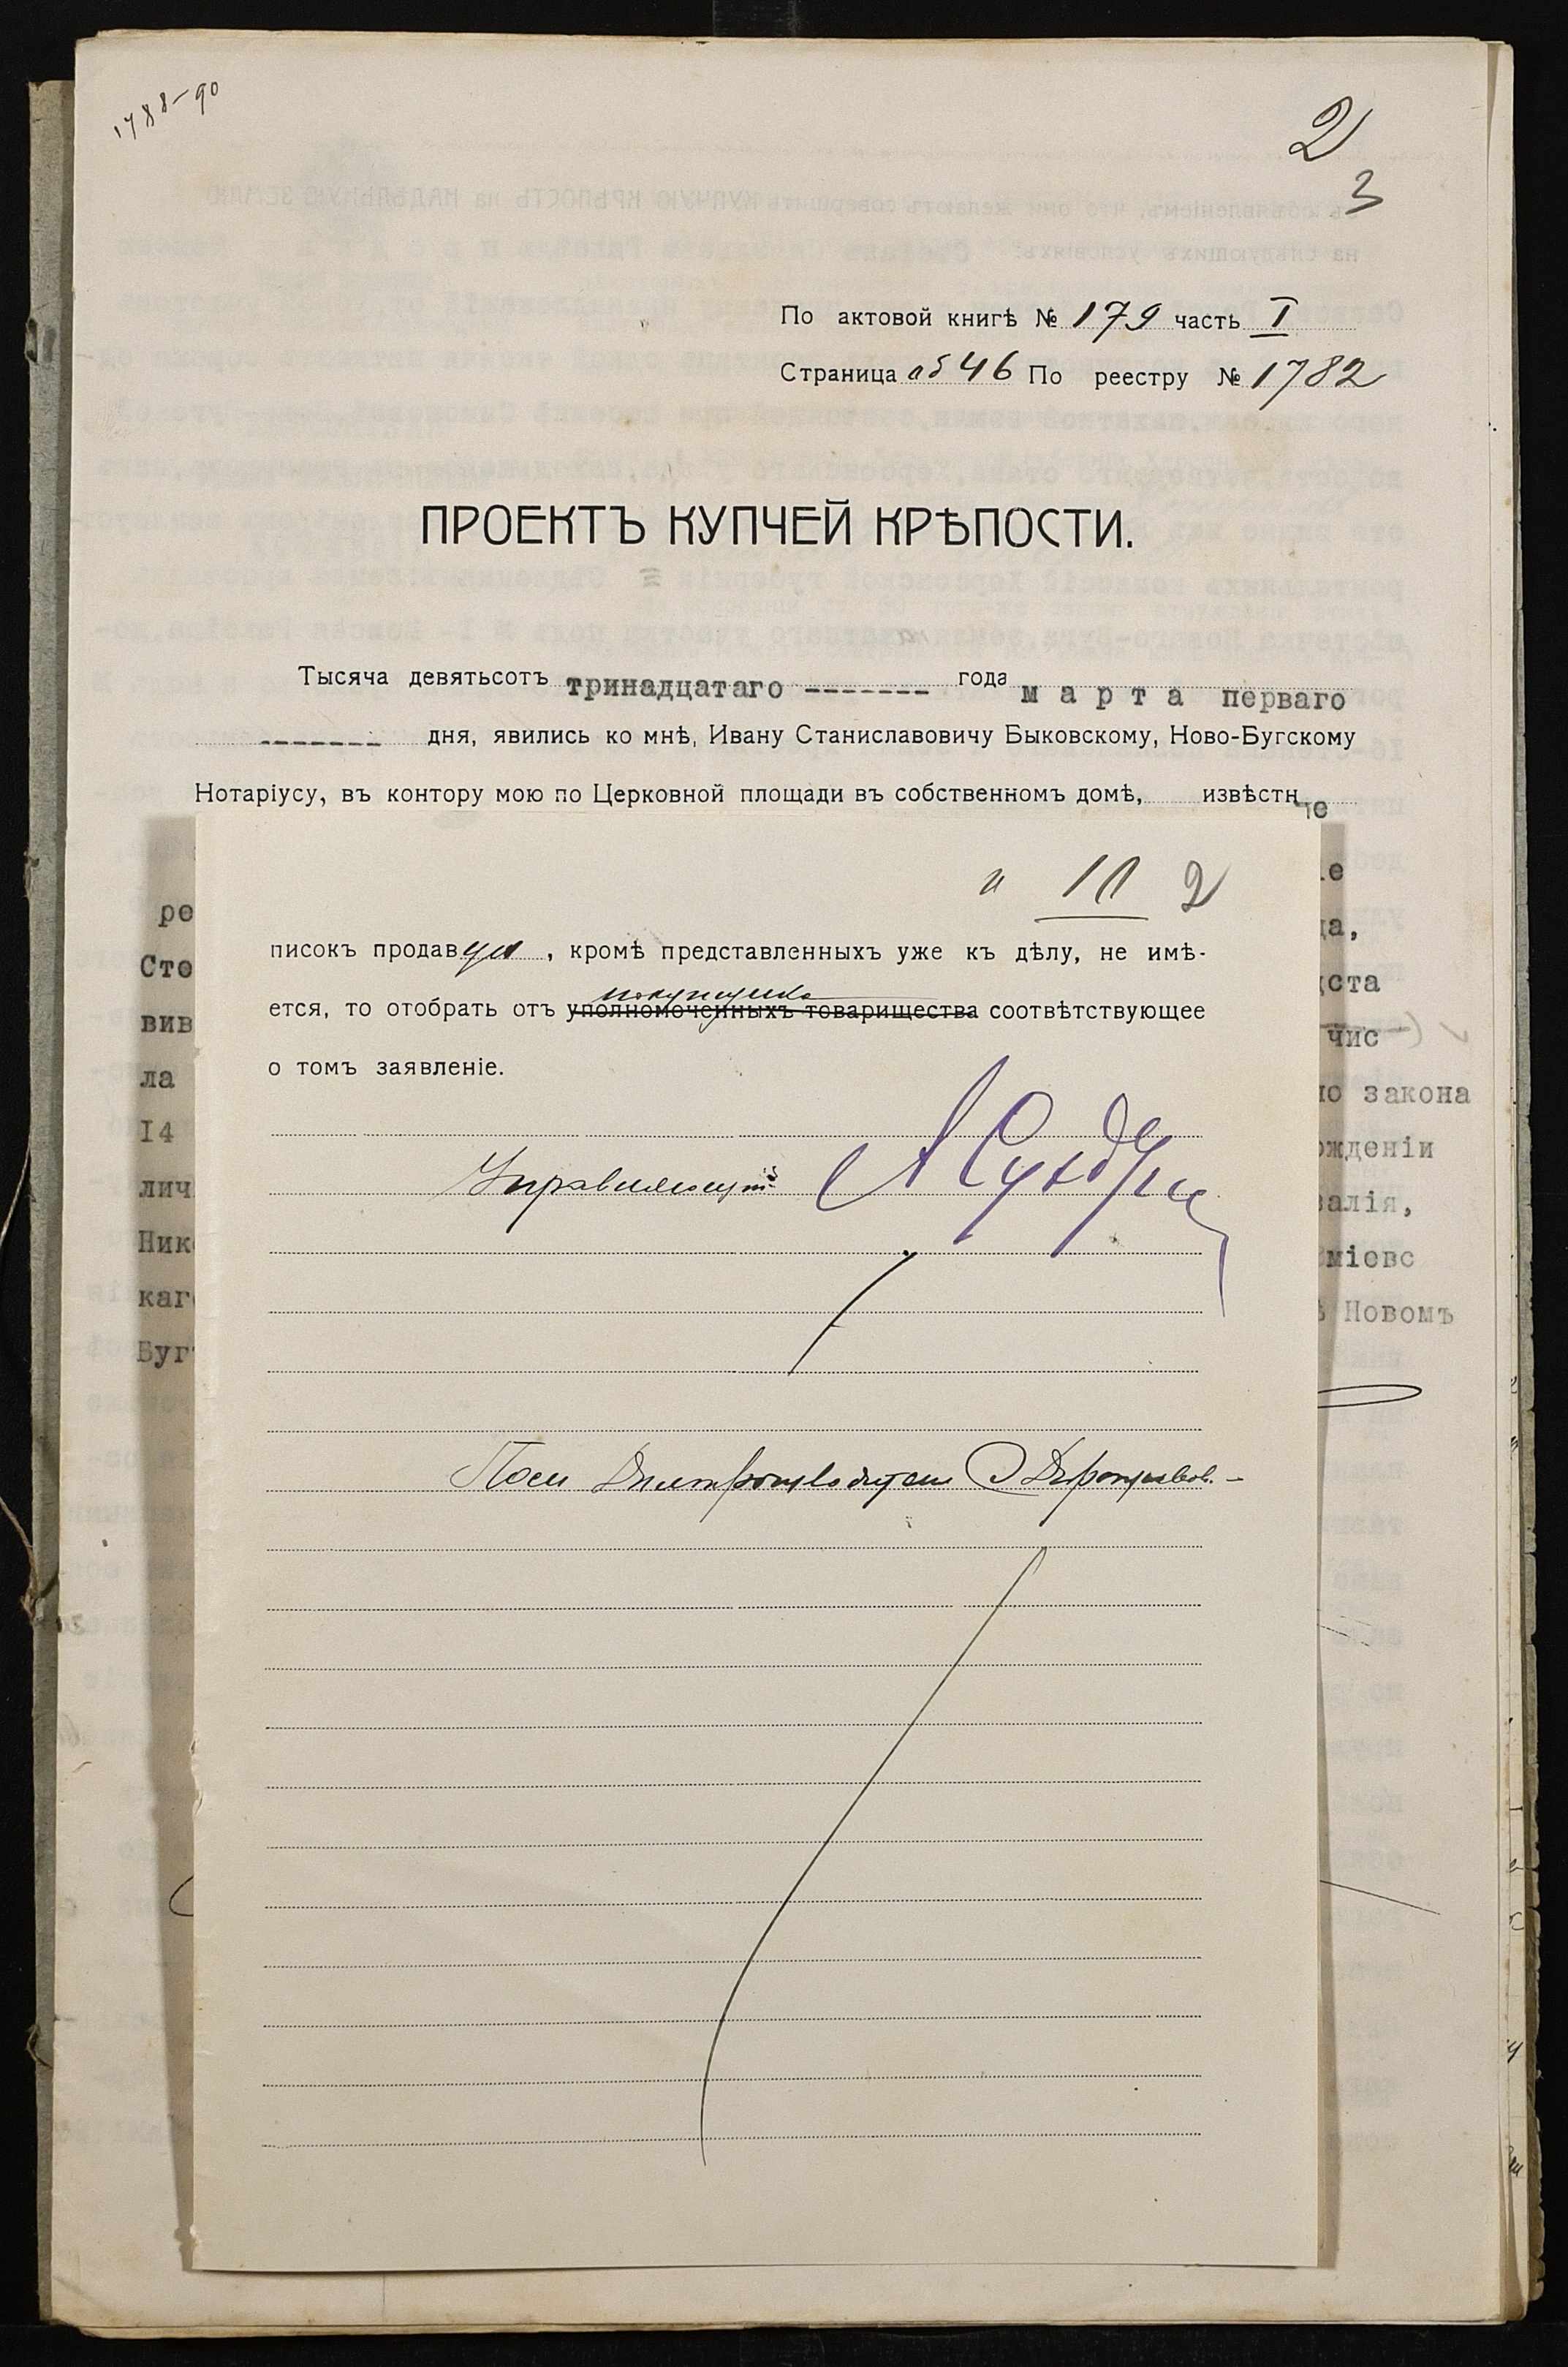 1788-90
2
3
По актовой книгѣ № 179 часть I
Страница об 46 По реестру № 1782
ПРОЕКТЪ КУПЧЕЙ КРѢПОСТИ.
Тысяча девятьсотъ тринадцатаго ------- года марта перваго
------- дня, явились ко мнѣ, Ивану Станиславовичу Быковскому, Ново-Бугскому
Нотаріусу, въ контору мою по Церковной площади въ собственномъ домѣ, извѣстн
и 10 2
писокъ продавца, кромѣ представленныхъ уже къ дѣлу, не имѣ-
покупщика
ется, то отобрать отъ уполномоченныхъ товарищества соотвѣтствующее
о томъ заявленіе.
Управляющій
ре
Сто
вив
ла
14
лич
Ник
каго
Буг
ие
да,
дста
чис
по закона
ожденіи
валія,
міевс
ѣ Новомъ